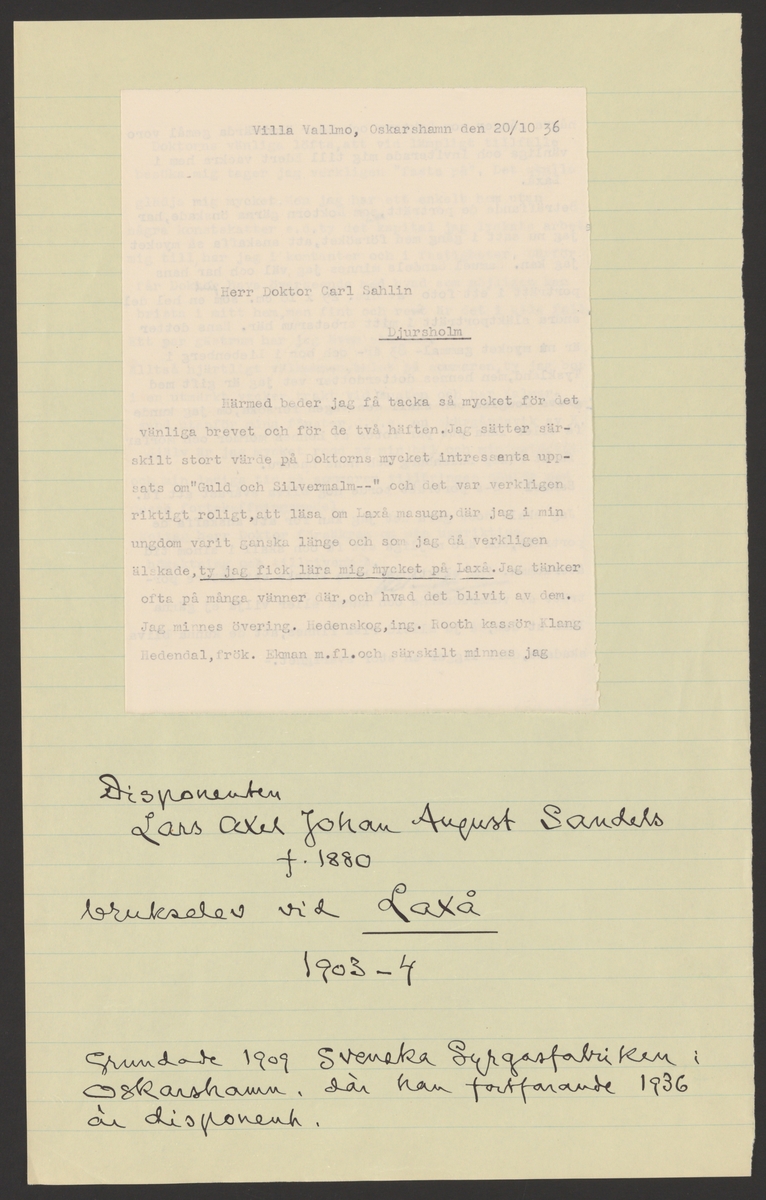 Villa Vallmo, Oskarshamn den 20/10 36
Herr Doktor Carl Sahlin
Djursholm
Härmed beder jag få tacka så mycket för det
vänliga brevet och för de två häften.Jag sätter sär-
skilt stort värde på Doktorns mycket intressenta upp-
sats om"Guld och Silvermalm--" och det var verkligen
riktigt roligt,att läsa om Laxå masugn,där jag i min
ungdom varit ganska länge och som jag då verkligen
älskade,ty jag fick lära mig mycket på Laxå.Jag tänker
ofta på många vänner där,och hvad det blivit av dem.
Jag minnes övering. Hedenskog,ing. Rooth kassör Klang
Hedendal,frök. Ekman m.fl.och särskilt minnes jag
Disponenten
Lars Axel Johan August Sandels
f. 1880
brukselev vid Laxå
1903-4
Grundade 1909 Svenska Syrgasfabriken i
Oskarshamn. där han fortfarande 1936
är disponent.